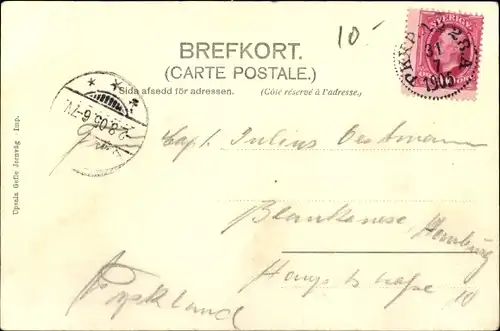 10
BREFKORT.
(CARTE POSTALE.)
Sida afsedd för adressen. (Côte réservé à l'adresse.)
SVERIGE
PKXP. N:o 28. A.
31
1905
2.8.05.6-7V.
Capt. Julius Oestmann
Blankenese, Hamburg
Haupstrasse 10
Tyskland
Upsala Gefle Jernväg - Imp.